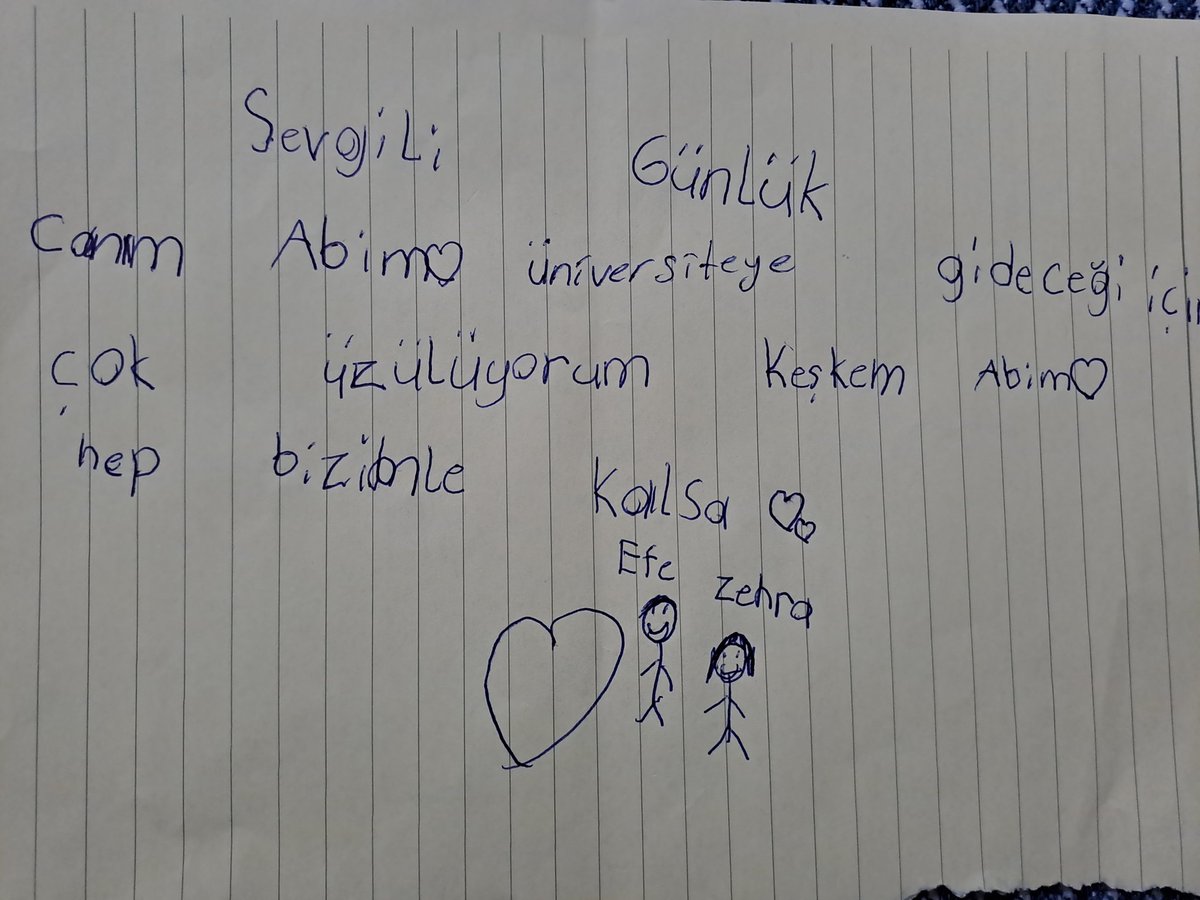 Sevgili Günlük
Canım Abim♡ üniversiteye gideceği için
çok üzülüyorum Keşkem Abim♡
hep bizimle Kalsa ♡♡
Efe Zehra